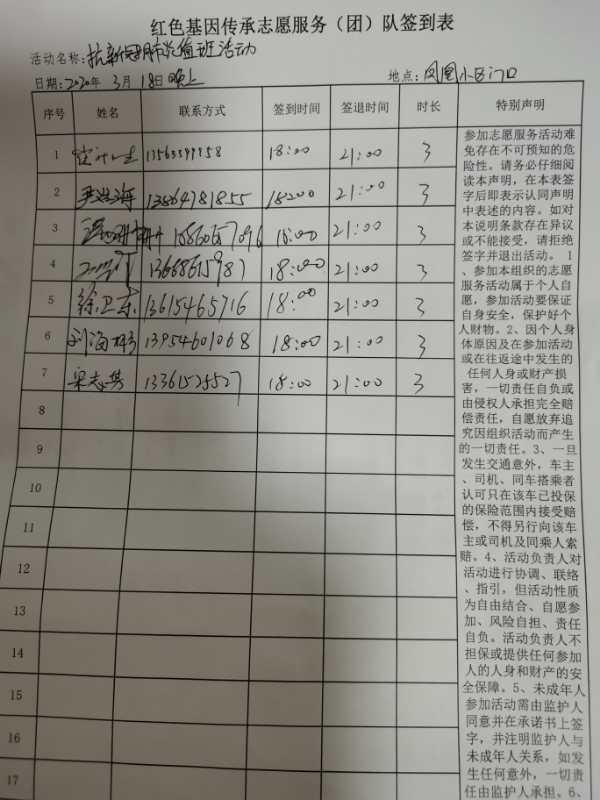 红色基因传承志愿服务（团）队签到表
活动名称：抗新冠肺炎值班活动
日期：2020年 3月 18日晚上 地点：凤凰小区门口
序号 姓名 联系方式 签到时间 签退时间 时长 特别声明
1 18:00 21:00 3
2 13864781855 18:00 21:00 3
3 18:00 21:00 3
4 13668615987 18:00 21:00 3
5 徐卫东 13615465716 18:00 21:00 3
6 刘海 13954601068 18:00 21:00 3
7 宋志勇 13361525527 18:00 21:00 3
8
9
10
11
12
13
14
15
16
17
参加志愿服务活动难
免存在不可预知的危
险性。请务必仔细阅
读本声明，在本表签
字后即表示认同声明
中表述的内容。如对
本说明条款存在异议
或不能接受，请拒绝
签字并退出活动。 1
、参加本组织的志愿
服务活动属于个人自
愿，参加活动要保证
自身安全，保护好个
人财物。2、因个人身
体原因及在参加活动
或在往返途中发生的
任何人身或财产损
害，一切责任自负或
由侵权人承担完全赔
偿责任，自愿放弃追
究因组织活动而产生
的一切责任。3、一旦
发生交通意外，车主
、司机、同车搭乘者
认可只在该车已投保
的保险范围内接受赔
偿，不得另行向该车
主或司机及同乘人索
赔。4、活动负责人对
活动进行协调、联络
、指引，但活动性质
为自由结合、自愿参
加、风险自担、责任
自负。活动负责人不
担保或提供任何参加
人的人身和财产的安
全保障。5、未成年人
参加活动需由监护人
同意并在承诺书上签
字，并注明监护人与
未成年人关系，如发
生任何意外，一切责
任由监护人承担。6、